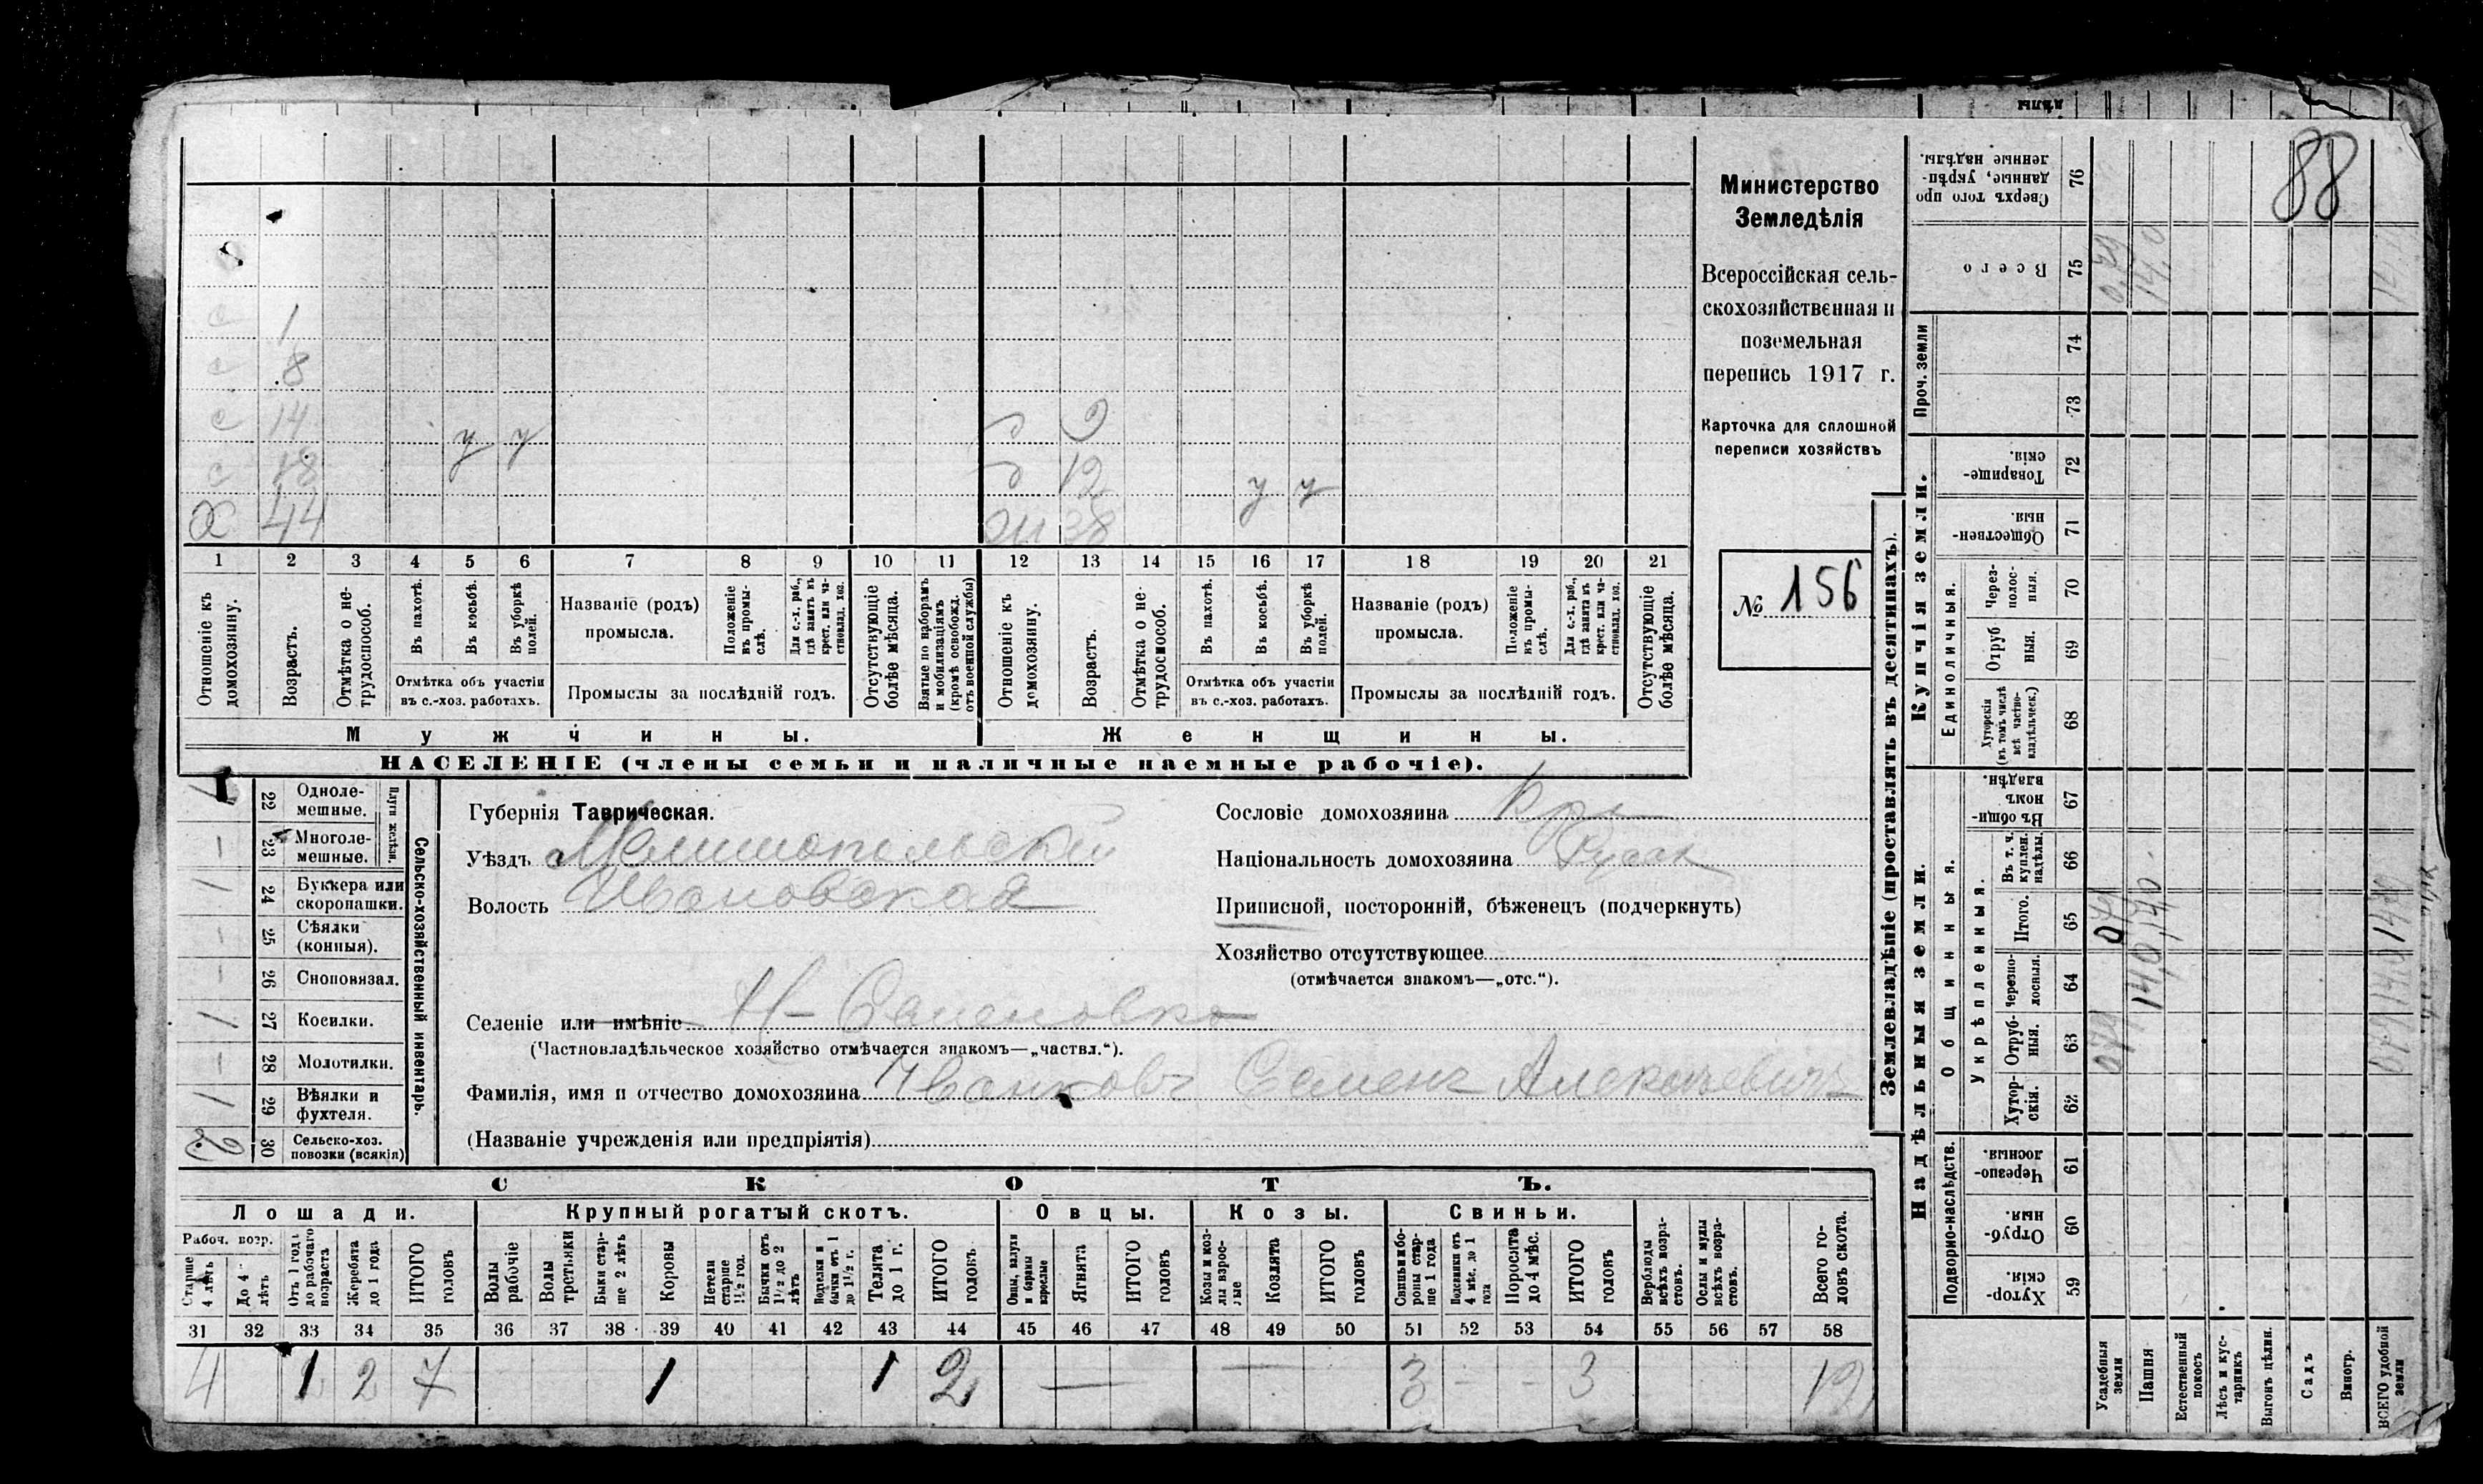 88
1
8
14 у у 9
18 12 у у
Х 44 38
1 2 3 4 5 6 7 8 9 10 11 12 13 14 15 16 17 18 19 20 21
Отношеніе къ домохозяину.
Возрастъ.
Отмѣтка о нетрудоспособ.
Въ пахотѣ.
Въ косьбѣ.
Въ уборкѣ полей.
Отмѣтка объ участіи
въ с.-хоз. работахъ.
Названіе (родъ)
промысла.
Положеніе въ промыслѣ.
Для с.-х. раб., гдѣ занятъ въ крест. или частновлад. хоз.
Промыслы за послѣдній годъ.
Отсутствующіе болѣе мѣсяца.
Взятые по наборамъ и мобилизаціямъ (кромѣ освобожд. отъ военной службы)
Отношеніе къ домохозяину.
Возрастъ.
Отмѣтка о нетрудоспособ.
Въ пахотѣ.
Въ косьбѣ.
Въ уборкѣ полей.
Отмѣтка объ участіи
въ с.-хоз. работахъ.
Названіе (родъ)
промысла.
Положеніе въ промыслѣ.
Для с.-х. раб., гдѣ занята въ крест. или частновлад. хоз.
Промыслы за послѣдній годъ.
Отсутствующіе болѣе мѣсяца.
Мужчины. Женщины.
НАСЕЛЕНІЕ (члены семьи и наличные наемные рабочіе).
Министерство
Земледѣлія
Всероссійская сель-
скохозяйственная и
поземельная
перепись 1917 г.
Карточка для сплошной
переписи хозяйствъ
№ 156
Сельско-хозяйственный инвентарь.
Плуги желѣзн.
1 22 Одноле-
мешные.
— 23 Многоле-
мешные.
1 24 Буккера или
скоропашки.
— 25 Сѣялки
(конныя).
— 26 Сноповязал.
1 27 Косилки.
— 28 Молотилки.
1 29 Вѣялки и
фухтеля.
2 30 Сельско-хоз.
повозки (всякія)
Губернія Таврическая.
Уѣздъ Мелитопольскій
Волость Ивановская
Селеніе или имѣніе Н-Семеновка
(Частновладѣльческое хозяйство отмѣчается знакомъ—„частвл.“).
Фамилія, имя и отчество домохозяина Иванковъ Семенъ Алексѣевичъ
(Названіе учрежденія или предпріятія)
Сословіе домохозяина Кр
Національность домохозяина Русак
Приписной, посторонній, бѣженецъ (подчеркнуть)
Хозяйство отсутствующее
(отмѣчается знакомъ—„отс.“).
СКОТЪ.
Лошади. Крупный рогатый скотъ. Овцы. Козы. Свиньи.
Рабоч. возр.
Старше 4 лѣтъ
До 4 лѣтъ
Отъ 1 года до рабочаго возраста
Жеребята до 1 года
ИТОГО головъ
Волы рабочіе
Волы третьяки
Быки старше 2 лѣтъ
Коровы
Нетели старше 1 1/2 год.
Бычки отъ 1 1/2 до 2 лѣтъ
Подтелки и бычки отъ 1 до 1 1/2 г.
Телята до 1 г.
ИТОГО головъ
Овцы, валухи и бараны взрослые
Ягнята
ИТОГО головъ
Козы и козлы взрослые
Козлята
ИТОГО головъ
Свиньи и боровы старше 1 года
Подсвинки отъ 4 мѣс. до 1 года
Поросята до 4 мѣс.
ИТОГО головъ
Верблюды всѣхъ возрастовъ.
Ослы и мулы всѣхъ возрастовъ.
Всего головъ скота.
31 32 33 34 35 36 37 38 39 40 41 42 43 44 45 46 47 48 49 50 51 52 53 54 55 56 57 58
4 1 2 7 1 1 2 — — 3 - - 3 12
Землевладѣніе (проставлять въ десятинахъ).
Надѣльныя земли. Купчія земли. Проч. земли
Подворно-наслѣдств.
Общинныя.
Укрѣпленныя.
Единоличныя.
Хуторскія. 59
Отрубныя. 60
Черезполосныя. 61
Хуторскія. 62
Отрубныя. 63
Черезполосныя. 64
Итого. 65
Въ т. ч. куплен. надѣлы. 66
Въ общинномъ владѣн. 67
Хуторскія (въ томъ числѣ всѣ частновладѣльческ.) 68
Отрубныя. 69
Черезполосныя. 70
Общественныя. 71
Товарищескія. 72
73
74
Всего 75
Сверхъ того проданные, укрѣпленные надѣлы. 76
Усадебныя земли
Пашня
Естественный покосъ
Лѣсъ и кустарникъ
Выгонъ цѣлин.
Садъ
Виногр.
ВСЕГО удобной земли